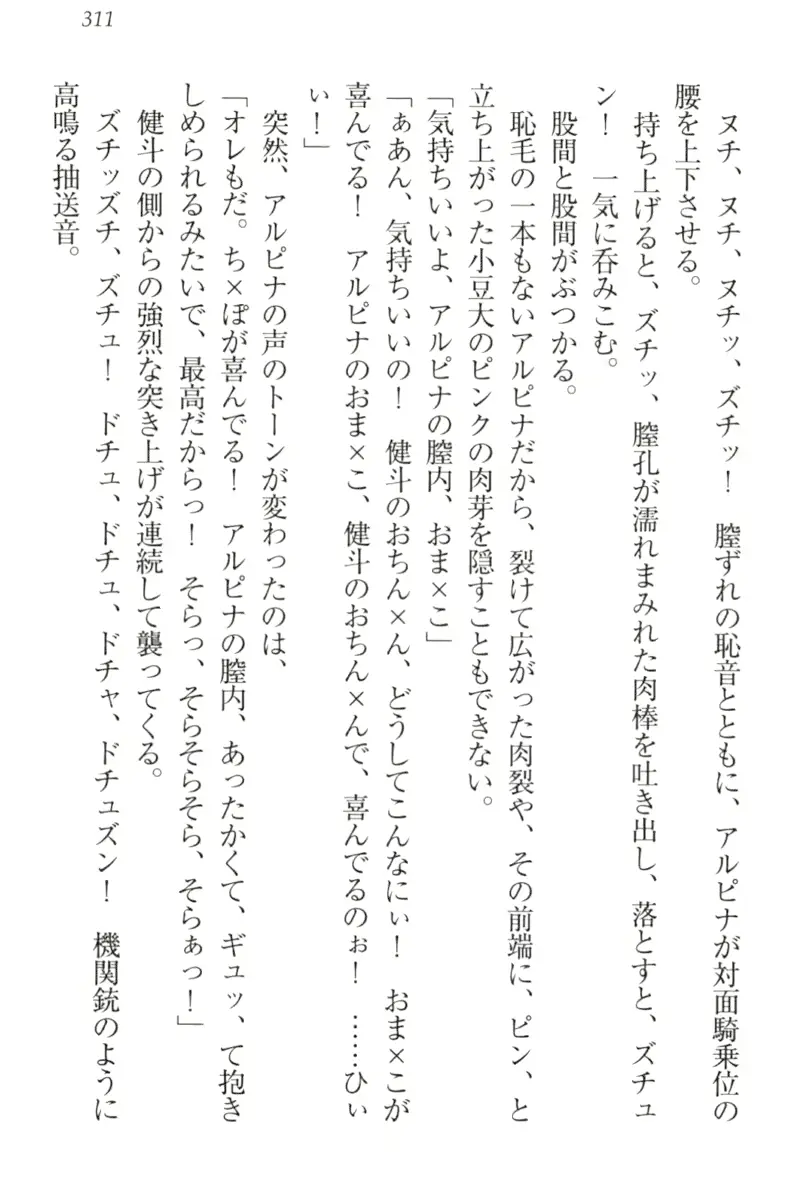 311
ヌチ、ヌチ、ヌチッ、ズチッ！　膣ずれの恥音とともに、アルピナが対面騎乗位の
腰を上下させる。
持ち上げると、ズチッ、膣孔が濡れまみれた肉棒を吐き出し、落とすと、ズチュ
ン！　一気に呑みこむ。
股間と股間がぶつかる。
恥毛の一本もないアルピナだから、裂けて広がった肉裂や、その前端に、ピン、と
立ち上がった小豆大のピンクの肉芽を隠すこともできない。
「気持ちいいよ、アルピナの膣内、おま×こ」
「ぁあん、気持ちいいの！　健斗のおちん×ん、どうしてこんなにぃ！　おま×こが
喜んでる！　アルピナのおま×こ、健斗のおちん×んで、喜んでるのぉ！　……ひぃ
ぃ！」
突然、アルピナの声のトーンが変わったのは、
「オレもだ。ち×ぽが喜んでる！　アルピナの膣内、あったかくて、ギュッ、て抱き
しめられるみたいで、最高だからっ！　そらっ、そらそらそら、そらぁっ！」
健斗の側からの強烈な突き上げが連続して襲ってくる。
ズチッズチ、ズチュ！　ドチュ、ドチュ、ドチャ、ドチュズン！　機関銃のように
高鳴る抽送音。